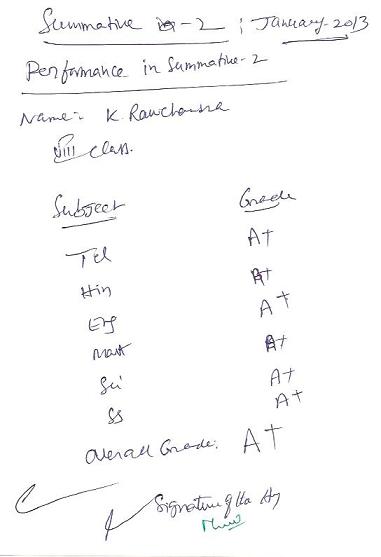 Summative - 2 ; January-2013
Performance in Summative-2
Name:- K. Ravichandra
VIII class.
Subject Grade
Tel A+
Hin A+
Eng A+
Math A+
Sci A+
SS A+
Overall Grade: A+
Signature of the